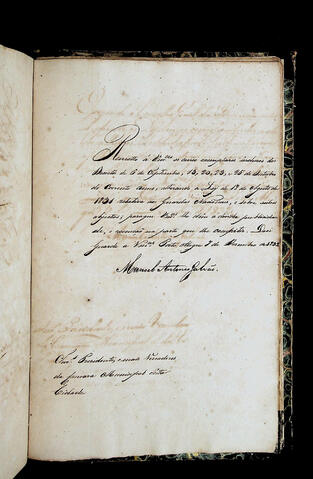 Remetto á Vmces os seis exemplares inclusos dos
Decretos de 6 de Septembro, 13, 22, 23, e 25 de Outubro
do Corrente anno, alterando a Ley de 18 de Agosto de
1831 relativa ás Guardas Nacionaes, e sobre outros
objectos; para que Vmces lhe dem a devida publicidade,
e execução na parte que lhe competir. Deos
Guarde a Vmces Porto Alegre 7 de Dezembro de 1832
Manuel Antonio Galvão.
Snres Presidente, e mais Vereadores
da Camara Municipal desta
Cidade